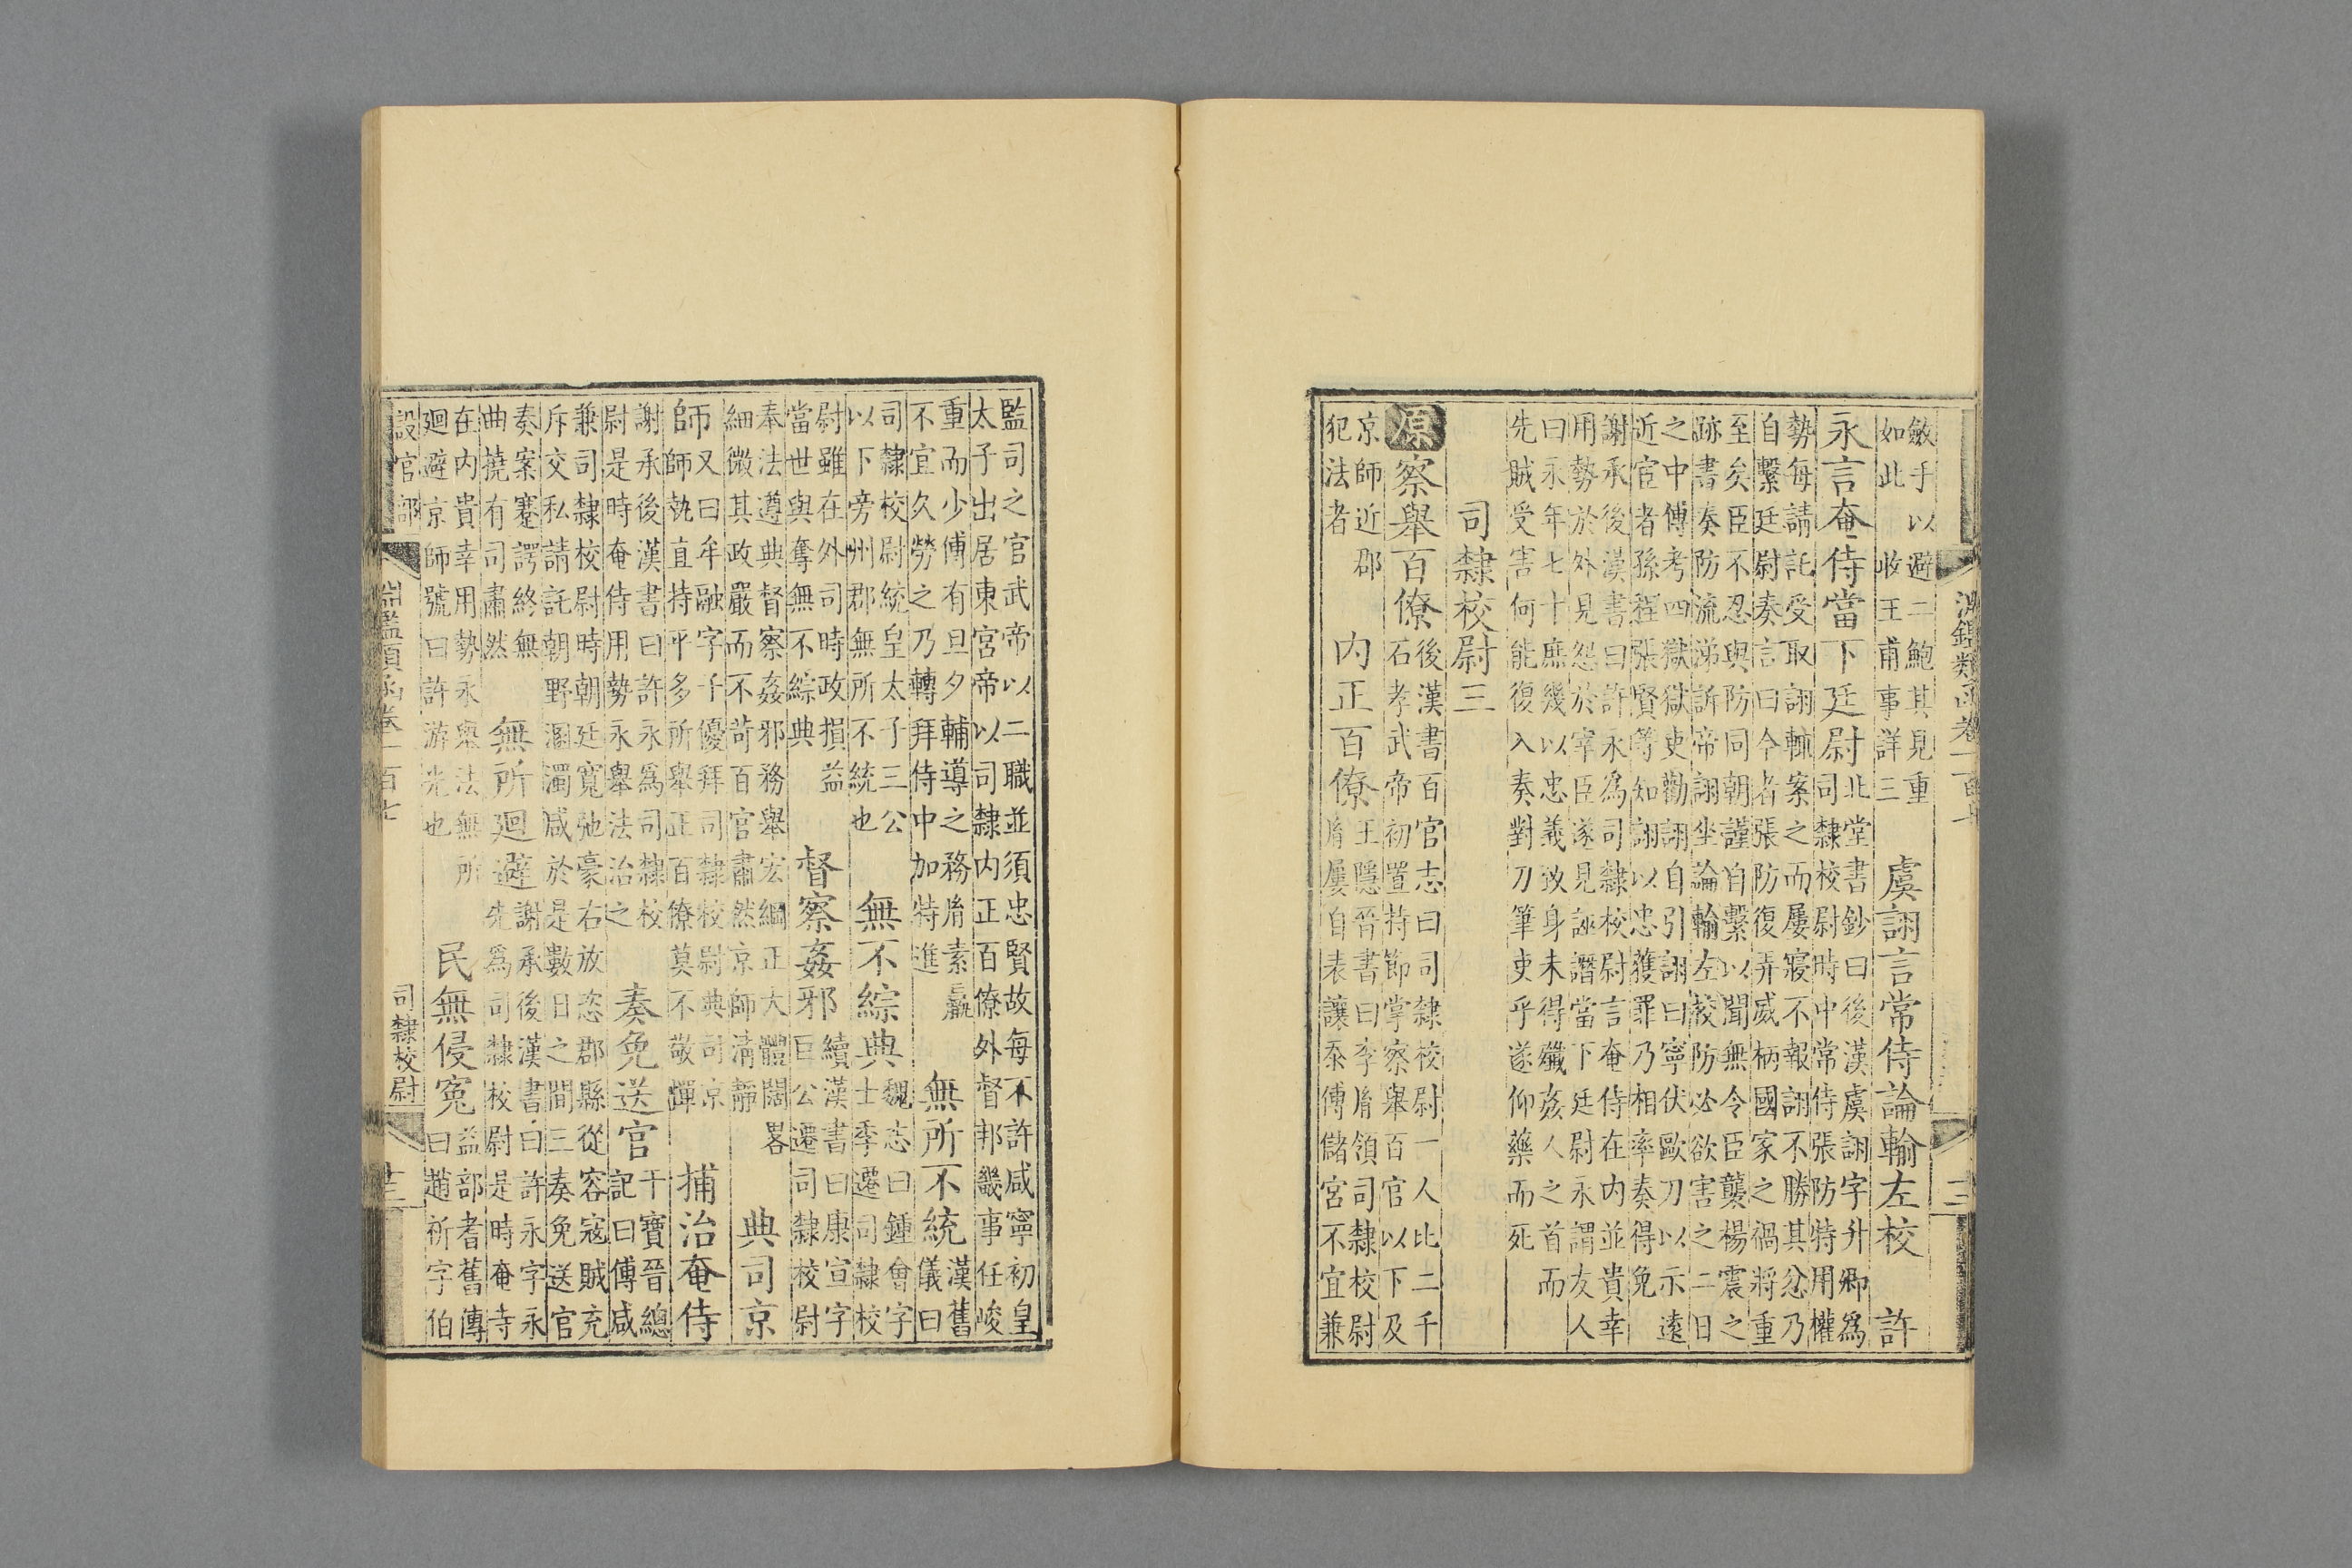 淵鑑類函卷一百七
斂手以避二鮑其見重
如此 收王甫事詳三
虞詡言常侍論輸左校 許
永言奄侍當下廷尉
北堂書鈔曰後漢虞詡字升卿為
司隸校尉時中常侍張防特用權
勢每請託受取詡輒案之而屢寢不報詡不勝其忿乃
自繫廷尉奏言曰今者張防復弄威柄國家之禍將重
至矣臣不忍與防同朝謹自繫以聞無令臣襲楊震之
跡書奏防流涕訴帝詡坐論輸左校防必欲害之二日
之中傅考四獄獄吏勸詡自引詡曰寧伏歐刀以示遠
近宦者孫程張賢等知詡以忠獲罪乃相率奏得免
謝承後漢書曰許永為司隸校尉言奄侍在內並貴幸
用勢於外見怨於宰臣遂見誣譖當下廷尉永謂友人
曰永年七十庶幾以忠義致身未得殲姦人之首而
先賊受害何能復入奏對刀筆吏乎遂仰藥而死
司隸校尉三
原 察舉百僚
後漢書百官志曰司隸校尉一人比二千
石孝武帝初置持節掌察舉百官以下及
京師近郡
犯法者
內正百僚
王隱晉書曰李胤領司隸校尉
胤屢自表讓忝傅儲宮不宜兼
監司之官武帝以二職並須忠賢故每不許咸寧初皇
太子出居東宮帝以司隸內正百僚外督邦畿事任峻
重而少傅有旦夕輔導之務胤素羸
不宜久勞之乃轉拜侍中加特進
無所不統
漢舊
儀曰
司隸校尉統皇太子三公
以下旁州郡無所不統也
無不綜典
魏志曰鍾會字
士季遷司隸校
尉雖在外司時政損益
當世與奪無不綜典
督察姦邪
續漢書曰康宣字
巨公遷司隸校尉
奉法遵典督察姦邪務舉宏綱正大體闊畧
細微其政嚴而不苛百官肅然京師清靜
典司京
師
又曰牟融字子優拜司隸校尉典司京
師執直持平多所舉正百僚莫不敬憚
捕治奄侍
謝承後漢書曰許永為司隸校
尉是時奄侍用勢永舉法治之
奏免送官
干寶晉總
記曰傅咸
兼司隸校尉時朝廷寬弛豪右放恣郡縣從容寇賊充
斥交私請託朝野溷濁咸於是數日之間三奏免送官
奏案蹇諤終無
曲撓有司肅然
無所廻避
謝承後漢書曰許永字永
先為司隸校尉是時奄寺
在內貴幸用勢永舉法無所
廻避京師號曰許游光也
民無侵寃
益部耆舊傳
曰趙祈字伯
設官部
司隸校尉
淵鑑類函卷一百七